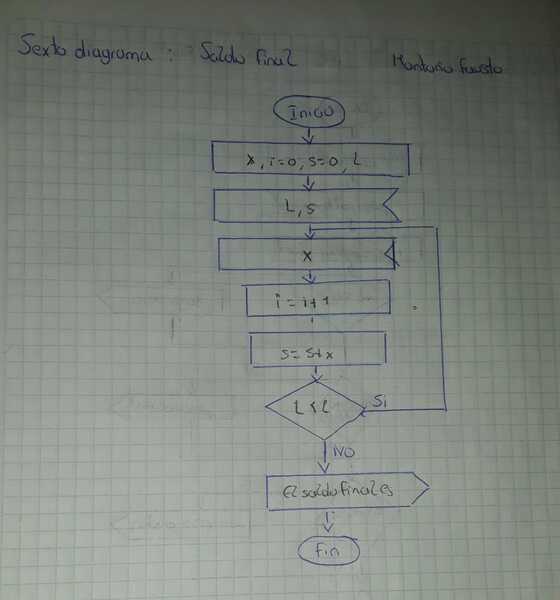 Sexto diagrama : Saldo final
Montaño fausto
Inicio
x, i=0, s=0, L
L, s
x
i = i+1
s = s+x
L < L
Si
NO
El saldo final es
Fin